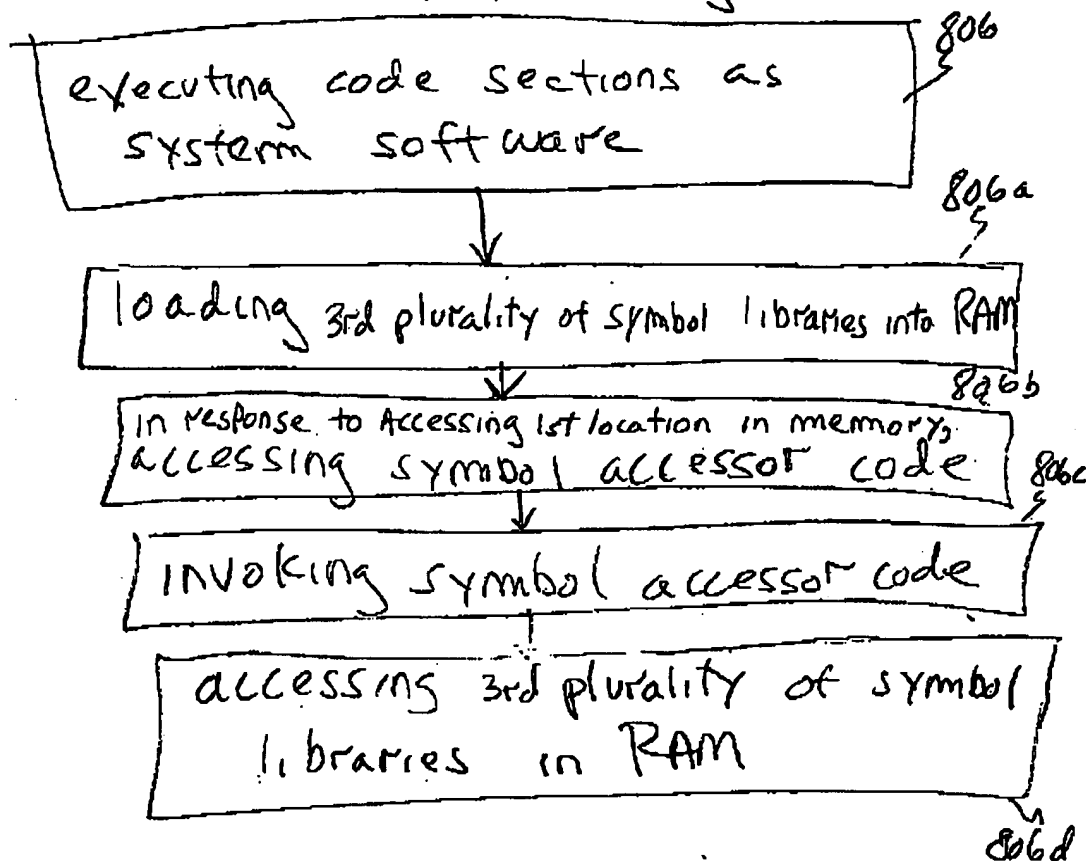 806
executing code sections as
system software
806a
loading 3rd plurality of symbol libraries into RAM
806b
in response to Accessing 1st location in memory,
accessing symbol accessor code
806c
invoking symbol accessor code
accessing 3rd plurality of symbol
libraries in RAM
806d